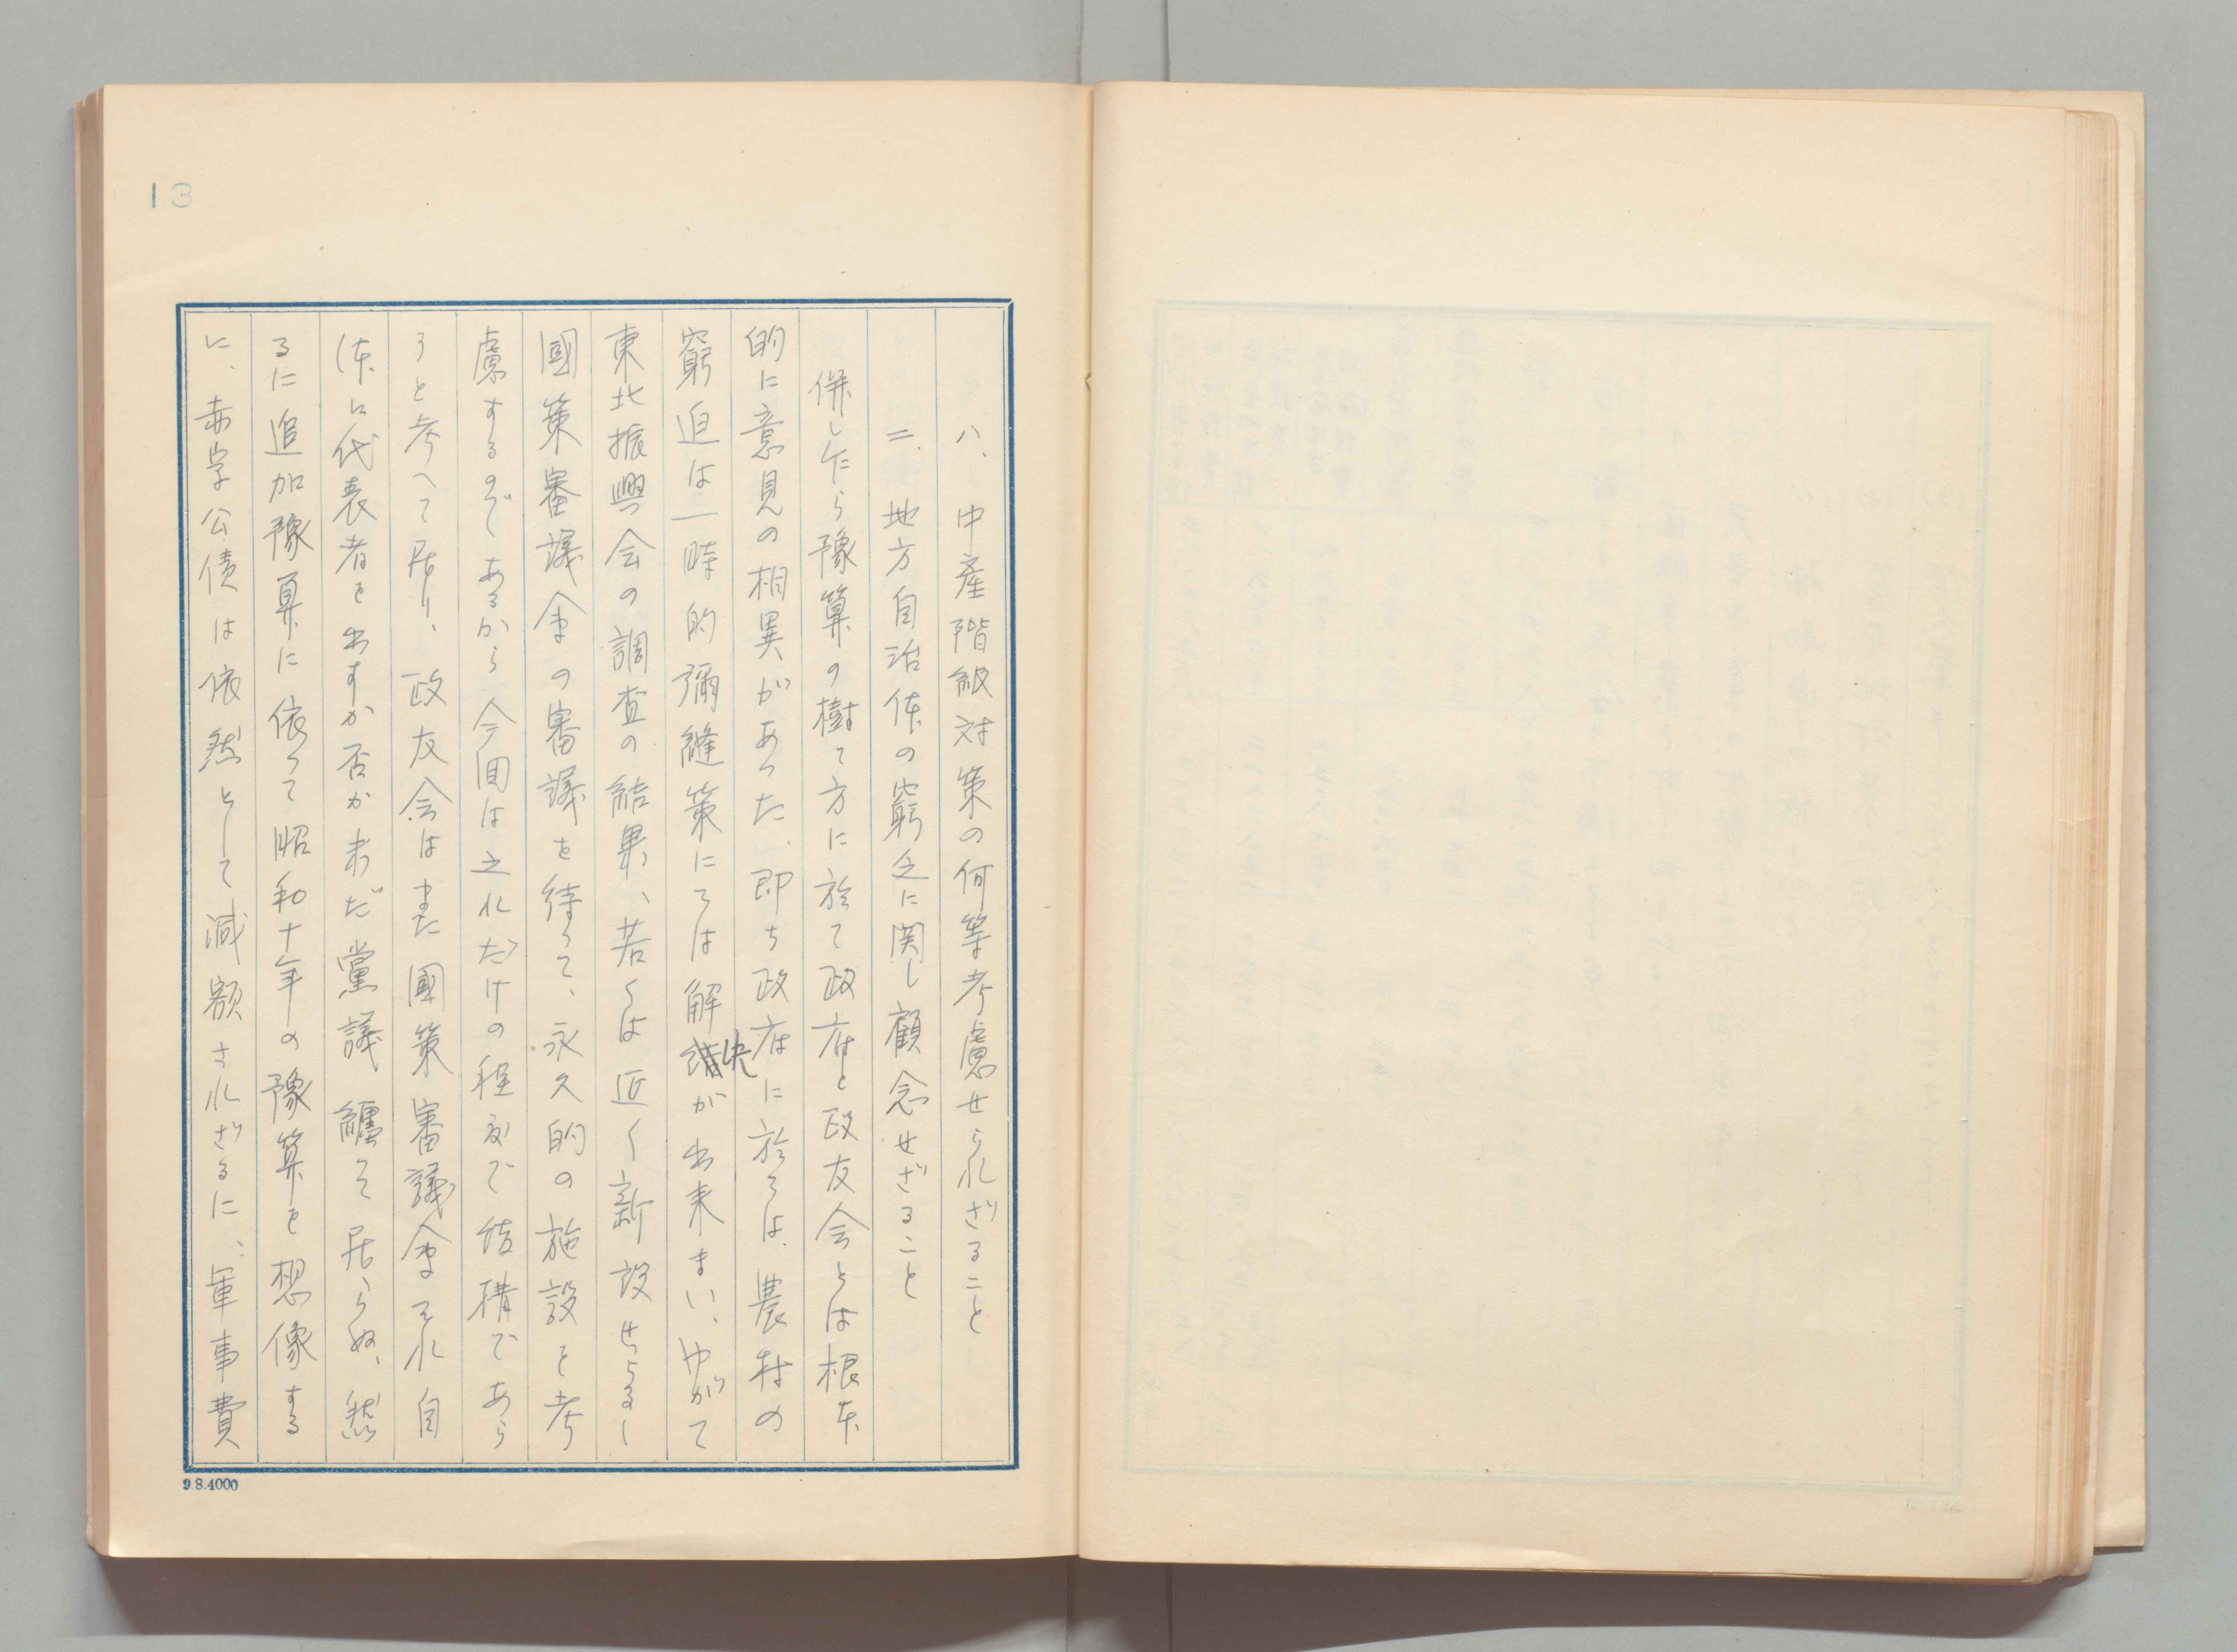 13
ハ、中産階級対策の何等考慮せられざること
ニ、地方自治体の窮乏に関し顧念せざること
併しだら豫算の樹て方に於て政府と政友会とは根本
的に意見の相異があつた、即ち政府に於ては、農村の
窮迫は一時的彌縫策にては解決が出来まい、やがて
東北振興会の調査の結果、若くは近く新設せらるし
國策審議会の審議を待つて、永久的の施設を考
慮するのであるから今回は之れだけの程度で結構であら
うと考へて居り、政友会はまた國策審議会それ自
体に代表者を出すか否か未だ黨議纏て居らぬ、然
るに追加豫算に依つて昭和十年の豫算を想像する
に、赤字公債は依然として減額されざるに、軍事費
9.8.4000